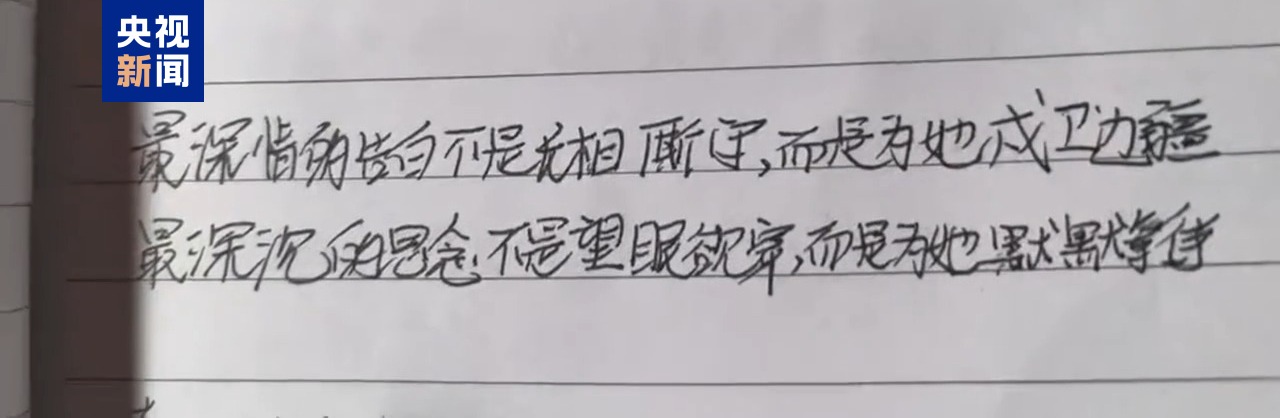 央视
新闻
最深情的告白不是长相厮守,而是为她戍卫边疆
最深沉的思念不是望眼欲穿,而是为她默默等待